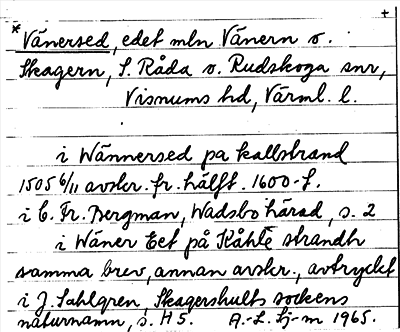 +
* Vänersed, edet mln Vänern o.
Skagern, S. Råda o. Rudskoga snr,
Visnums hd, Värml. l.
i Wännersed pa kallstrand
1505 6/11 avskr. fr. hälft. 1600-t.
i C. Fr. Bergman, Wadsbo härad, s. 2
i Wäner Eet på Kåhle strandh
samma brev, annan avskr., avtryckt
i J. Sahlgren, Skagershults sockens
naturnamn, s. 45. A.-L. Lj-m 1965.